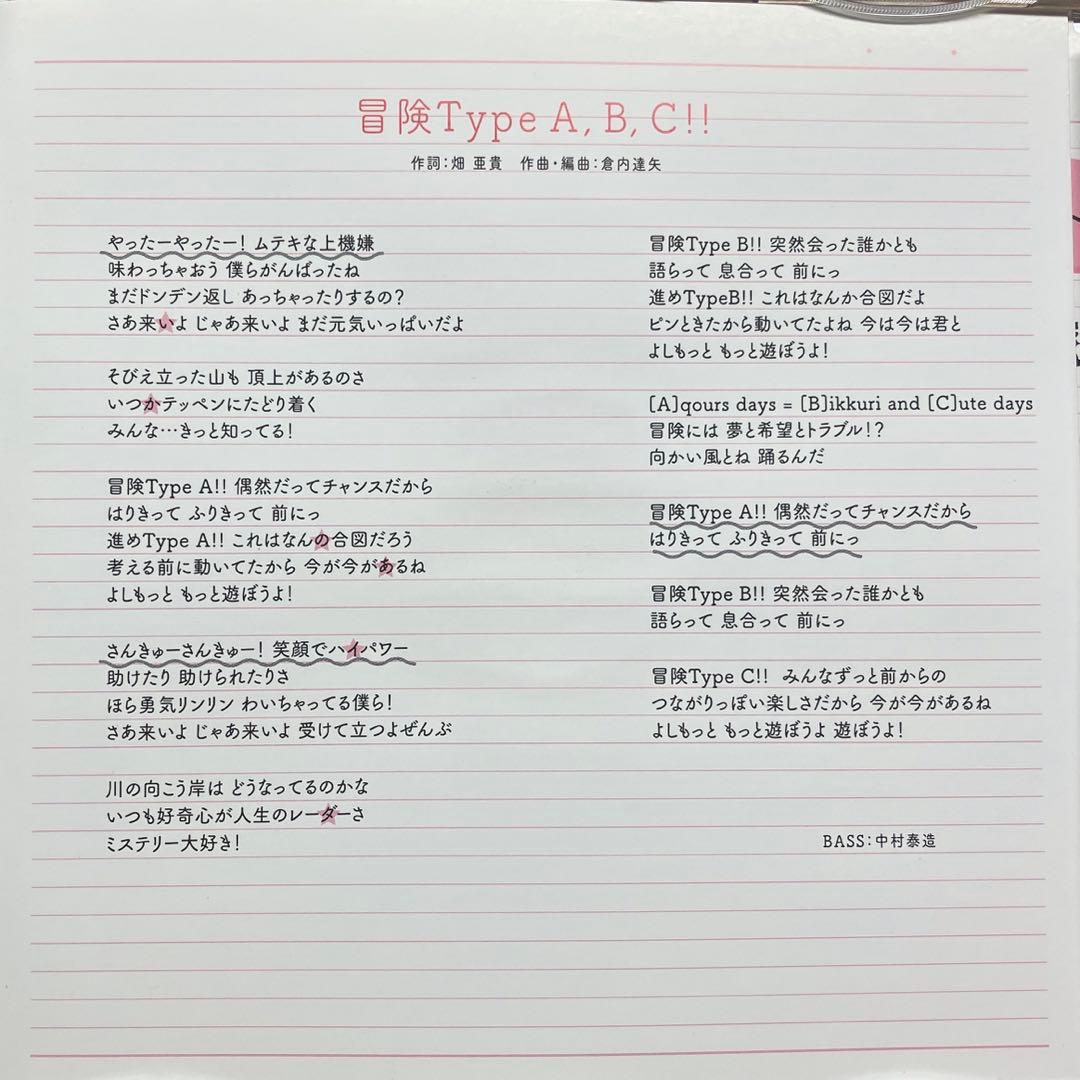 冒険Type A, B, C!!
作詞:畑 亜貴 作曲・編曲:倉内達矢
やったーやったー! ムテキな上機嫌
味わっちゃおう 僕らがんばったね
まだドンデン返し あっちゃったりするの?
さあ来いよ じゃあ来いよ まだ元気いっぱいだよ
そびえ立った山も 頂上があるのさ
いつかテッペンにたどり着く
みんな…きっと知ってる!
冒険Type A!! 偶然だってチャンスだから
はりきって ふりきって 前にっ
進めType A!! これはなんの合図だろう
考える前に動いてたから 今が今があるね
よしもっと もっと遊ぼうよ!
さんきゅーさんきゅー! 笑顔でハイパワー
助けたり 助けられたりさ
ほら勇気リンリン わいちゃってる僕ら!
さあ来いよ じゃあ来いよ 受けて立つよぜんぶ
川の向こう岸は どうなってるのかな
いつも好奇心が人生のレーダーさ
ミステリー大好き!
冒険Type B!! 突然会った誰かとも
語らって 息合って 前にっ
進めTypeB!! これはなんか合図だよ
ピンときたから動いてたよね 今は今は君と
よしもっと もっと遊ぼうよ!
[A]qours days = [B]ikkuri and [C]ute days
冒険には 夢と希望とトラブル!?
向かい風とね 踊るんだ
冒険Type A!! 偶然だってチャンスだから
はりきって ふりきって 前にっ
冒険Type B!! 突然会った誰かとも
語らって 息合って 前にっ
冒険Type C!! みんなずっと前からの
つながりっぽい楽しさだから 今が今があるね
よしもっと もっと遊ぼうよ 遊ぼうよ!
BASS:中村泰造